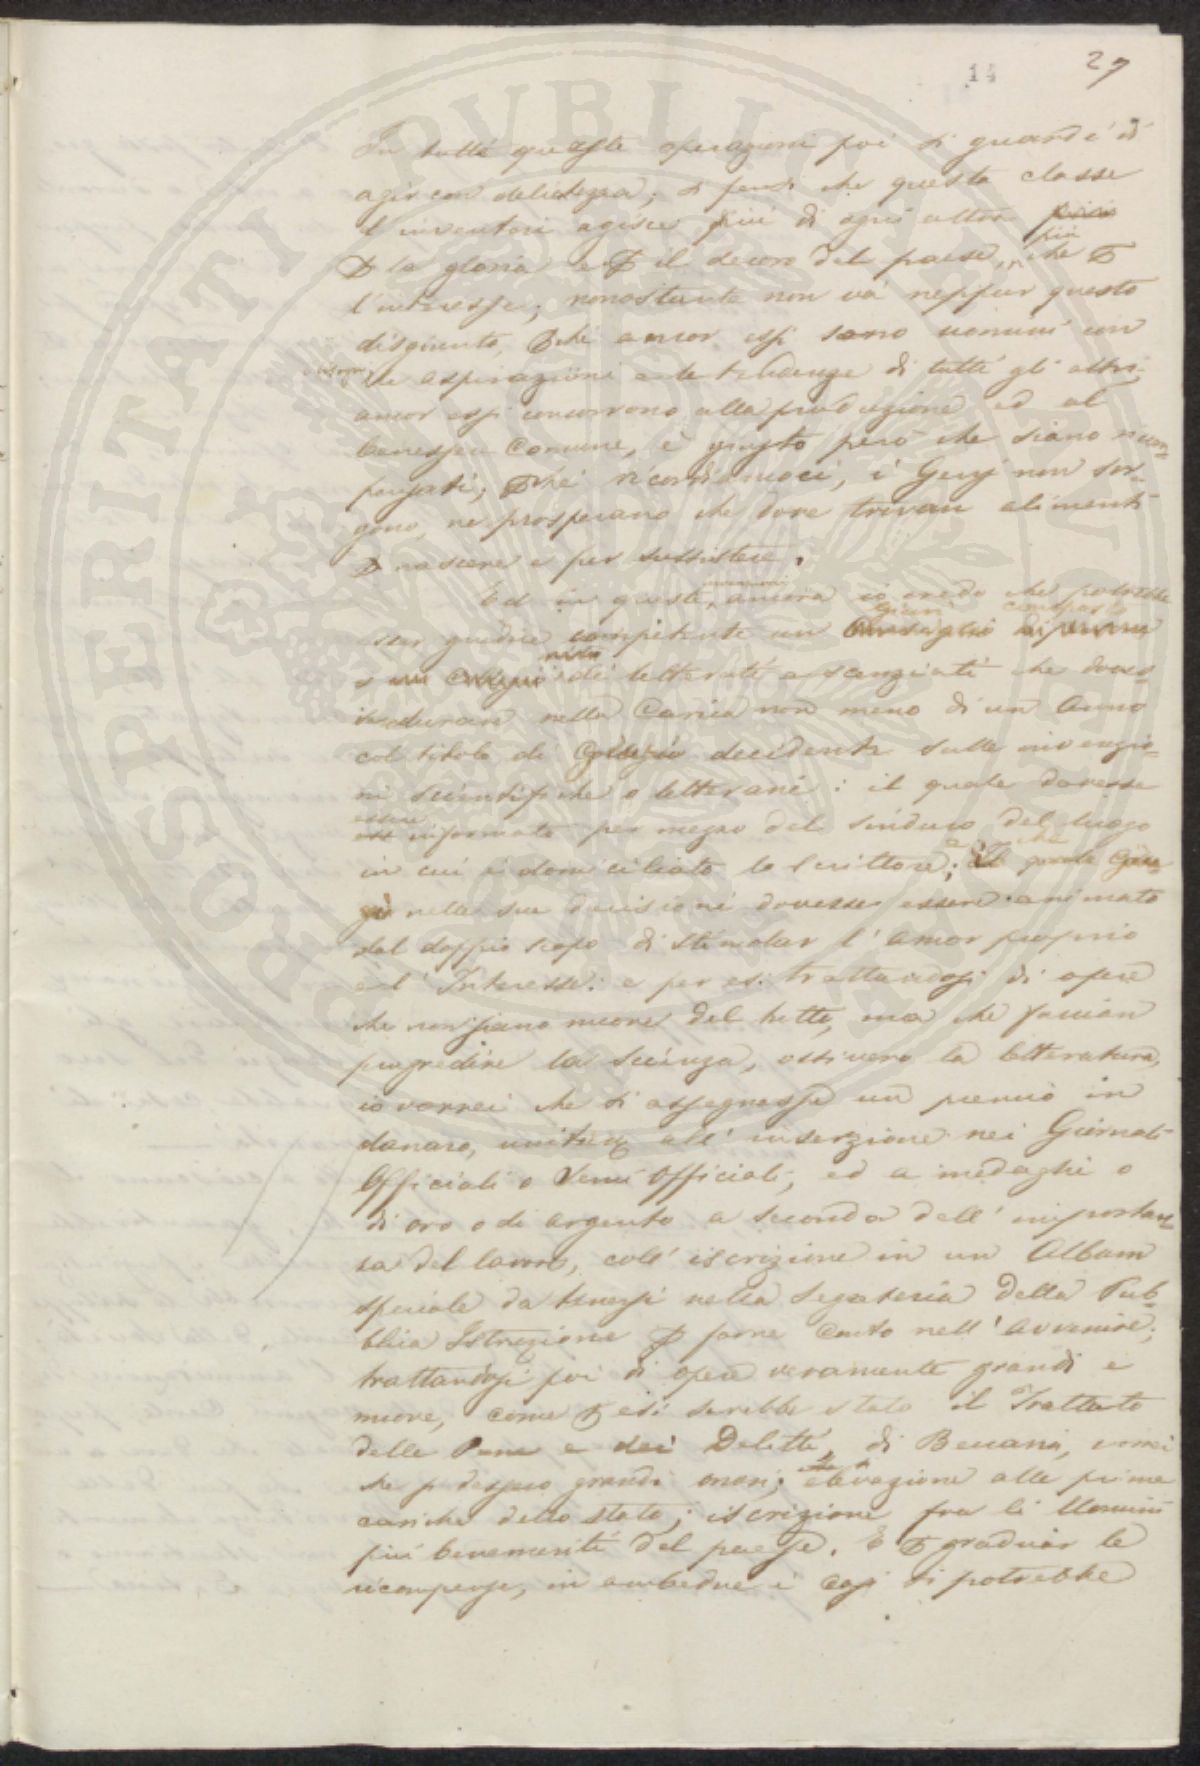 14 27
In tutte queste operazioni poi si guardi di
agir con delicatezza; si pensi che questa classe
d'inventori agisce più di ogni altra
più
P la gloria e P il decoro del paese, che P
l'interesse; nonostante non và neppur questo
disgiunto, Pchè ancor essi sono uomini con
le aspirazioni e le tendenze di tutti gli altri,
ancor essi concorrono alla produzione ed al
benessere Comune, è giusto però che siano ricom-
pensati; Pchè ricordiamoci, i Genj non sor-
gono, ne prosperano che dove trovan alimenti
P nascere e per sussistere.
invenzioni
Ed in queste ancora io credo che potrebbe
Giurì composto
esser giudice competente un Consiglio di
di letterati e scenziati che doves-
se durare nella Carica non meno di un Anno
col titolo di Collegio decidente sulle invenzio-
ni scientifiche o letterarie: il quale dovesse
essere
informato per mezzo del sindaco del luogo
che
in cui è domiciliato lo scrittore; il quale
nelle sue decisioni dovesse essere animato
dal doppio scopo di stimolar l'amor proprio
e l'Interesse: e per es: trattandosi di opere
che non siano nuove del tutto, ma che faccian
progredire la scienza, ossivero la letteratura,
io vorrei che si assegnasse un premio in
danaro, unito all'inserzione nei Giornali
Officiali o Semi Officiali, ed a medaglie o
di oro o di argento a seconda dell'importan-
za del lavoro, coll'iscrizione in un Album
speciale da tenersi nella Segreteria della Pub-
blica Istruzione P farne Conto nell'avvenire;
trattandosi poi di opere veramente grandi e
nuove, come P es: sarebbe stato il Trattato
delle Pene e dei Delitti, di Beccaria, vorrei
che si dessero grandi onori; elevazione alle prime
cariche dello stato; iscrizione fra li Uomini
più benemeriti del paese. E P graduar le
ricompense, in ambedue i casi si potrebbe